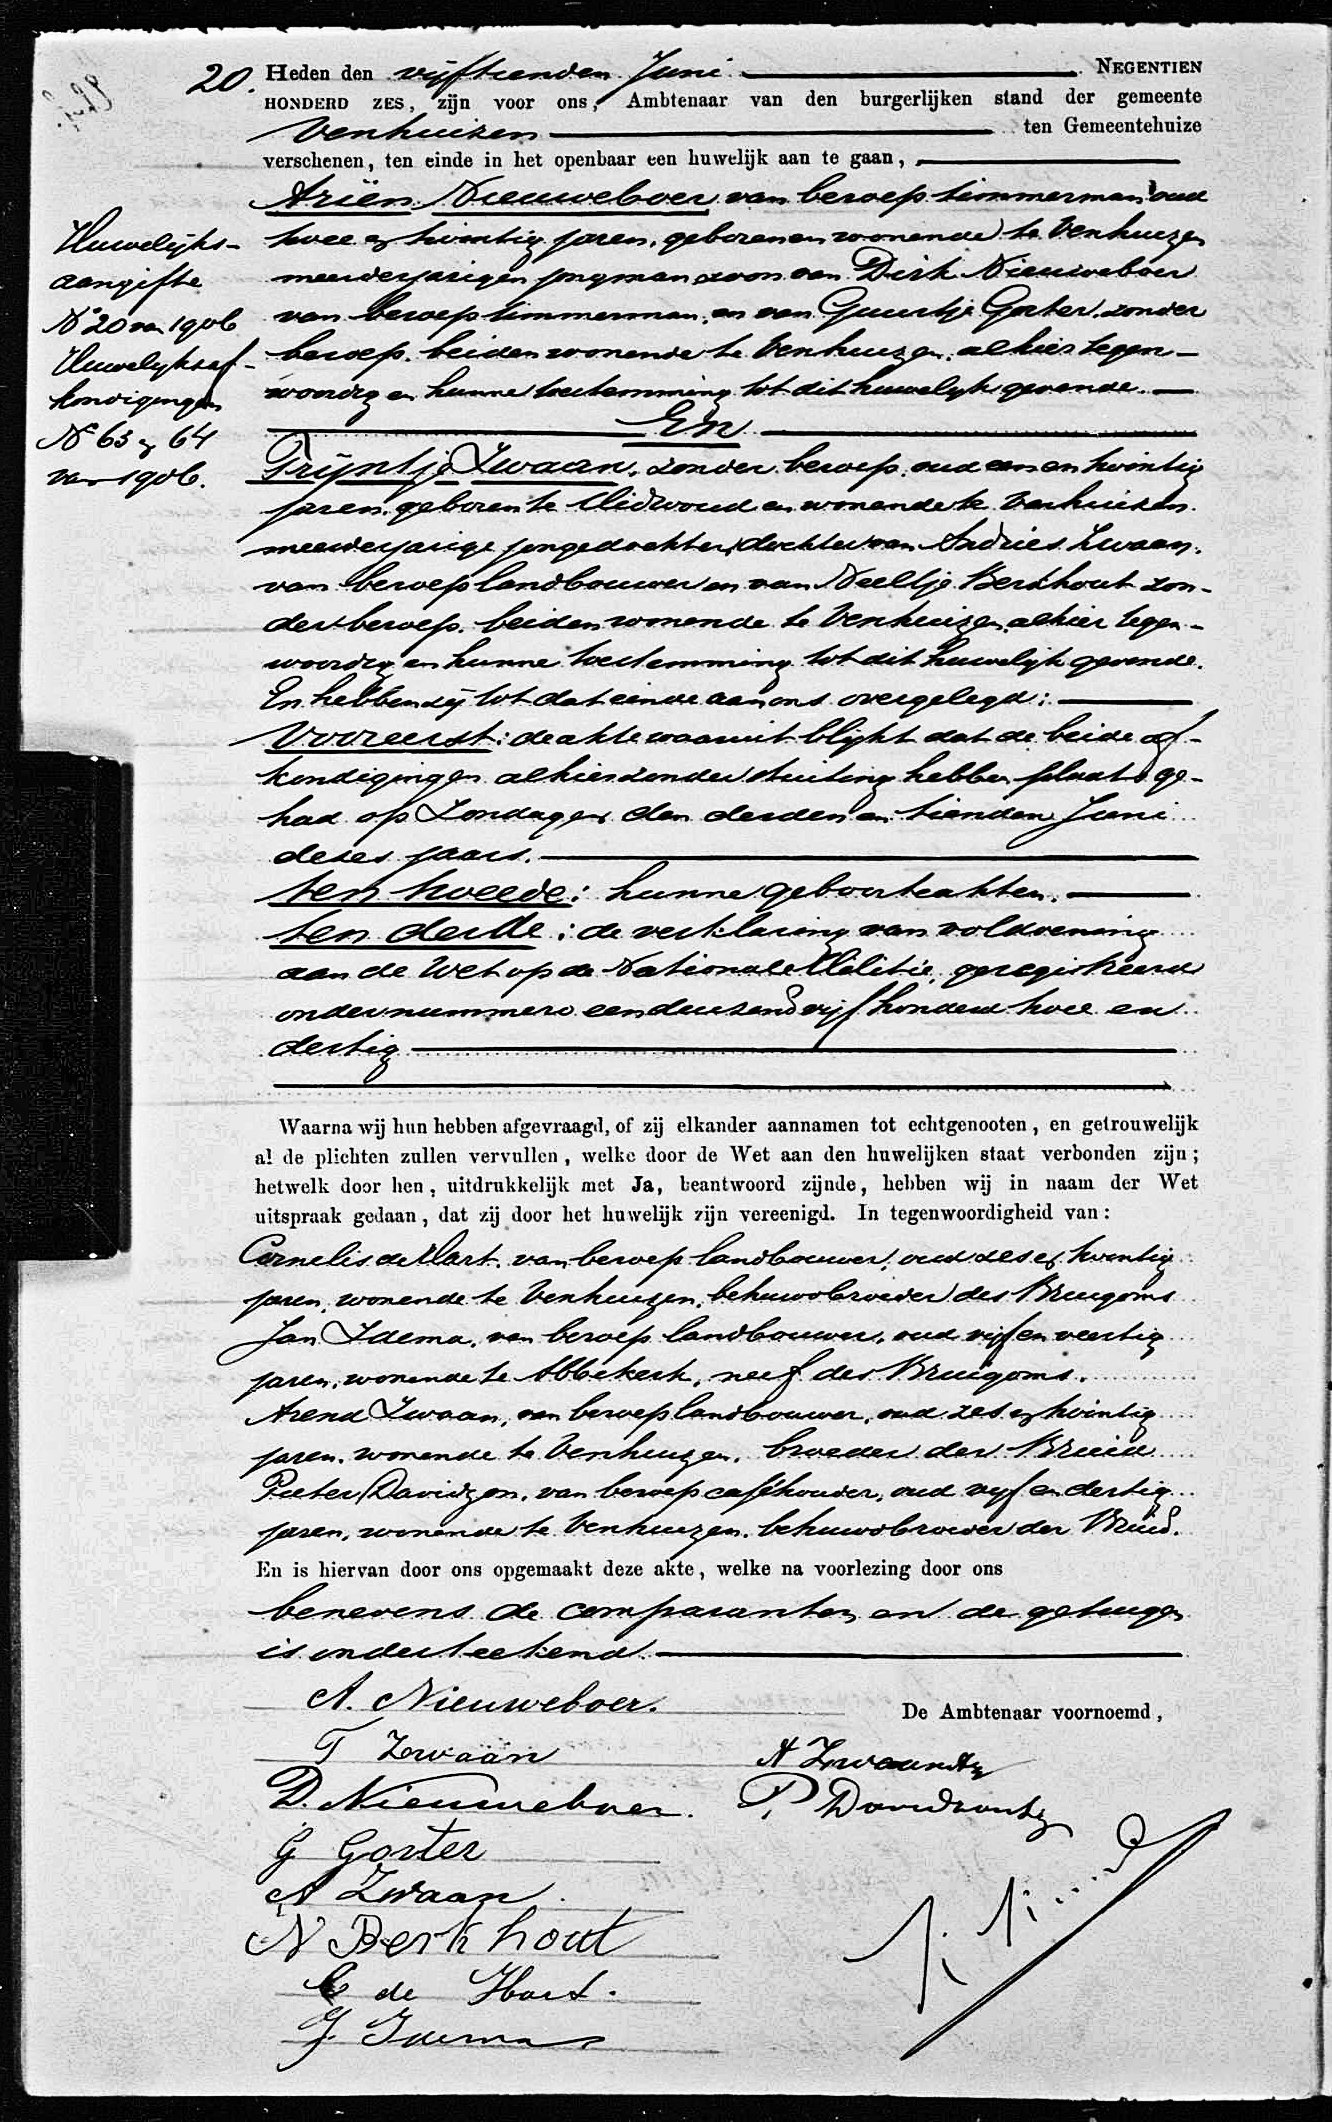 20. Heden den vijftienden Juni NEGENTIEN
HONDERD ZES, zijn voor ons, Ambtenaar van den burgerlijken stand der gemeente
Venhuizen ten Gemeentehuize
verschenen, ten einde in het openbaar een huwelijk aan te gaan,
Ariën Nieuweboer van beroep timmerman oud
twee en twintig jaren, geboren en wonende te Venhuizen
meerderjarigen jongman zoon van Dirk Nieuweboer
van beroep timmerman, en van Guurtje Gorter, zonder
beroep, beiden wonende te Venhuizen, alhier tegen-
woordig en hunne toestemming tot dit huwelijk gevende.
En
Trijntje Zwaan, zonder beroep, oud een en twintig
jaren, geboren te Midwoud en wonende te Venhuizen
meerderjarige jongedochter, dochter van Andries Zwaan,
van beroep landbouwer en van Neeltje Berkhout zon-
der beroep, beiden wonende te Venhuizen, alhier tegen-
woordig en hunne toestemming tot dit huwelijk gevende.
En hebben zij tot dat einde aan ons overgelegd:
Vooreerst: de akte waaruit blijkt dat de beide af-
kondigingen alhier zonder stuiting hebben plaats ge-
had op Zondagen den derden en tienden Juni
dezes jaars.
ten tweede: hunne geboorteakten.
ten derde: de verklaring van voldoening
aan de Wet op de Nationale Militie, geregistreerd
onder nummero een duizend vijf honderd twee en
dertig
Huwelijks-
aangifte
No 20 van 1906
Huwelijksaf-
kondigingen
No 63 en 64
van 1906.
Waarna wij hun hebben afgevraagd, of zij elkander aannamen tot echtgenooten, en getrouwelijk
al de plichten zullen vervullen, welke door de Wet aan den huwelijken staat verbonden zijn;
hetwelk door hen, uitdrukkelijk met Ja, beantwoord zijnde, hebben wij in naam der Wet
uitspraak gedaan, dat zij door het huwelijk zijn vereenigd. In tegenwoordigheid van:
Cornelis de Hart, van beroep landbouwer, oud zes en twintig
jaren, wonende te Venhuizen, behuwdbroeder des Bruigoms
Jan IJdema, van beroep landbouwer, oud vijf en veertig
jaren, wonende te Abbekerk, neef des Bruigoms.
Arend Zwaan, van beroep landbouwer, oud zes en twintig
jaren, wonende te Venhuizen, broeder der Bruid
Pieter Davidzon, van beroep caféhouder, oud vijf en dertig
jaren, wonende te Venhuizen, behuwdbroeder der Bruid.
En is hiervan door ons opgemaakt deze akte, welke na voorlezing door ons
benevens de comparanten en de getuigen
is onderteekend.
A. Nieuweboer. De Ambtenaar voornoemd,
T Zwaan A Zwaan
D. Nieuweboer. P. Davidzon
G Gorter
A Zwaan
N Berkhout
C de Hart.
J.